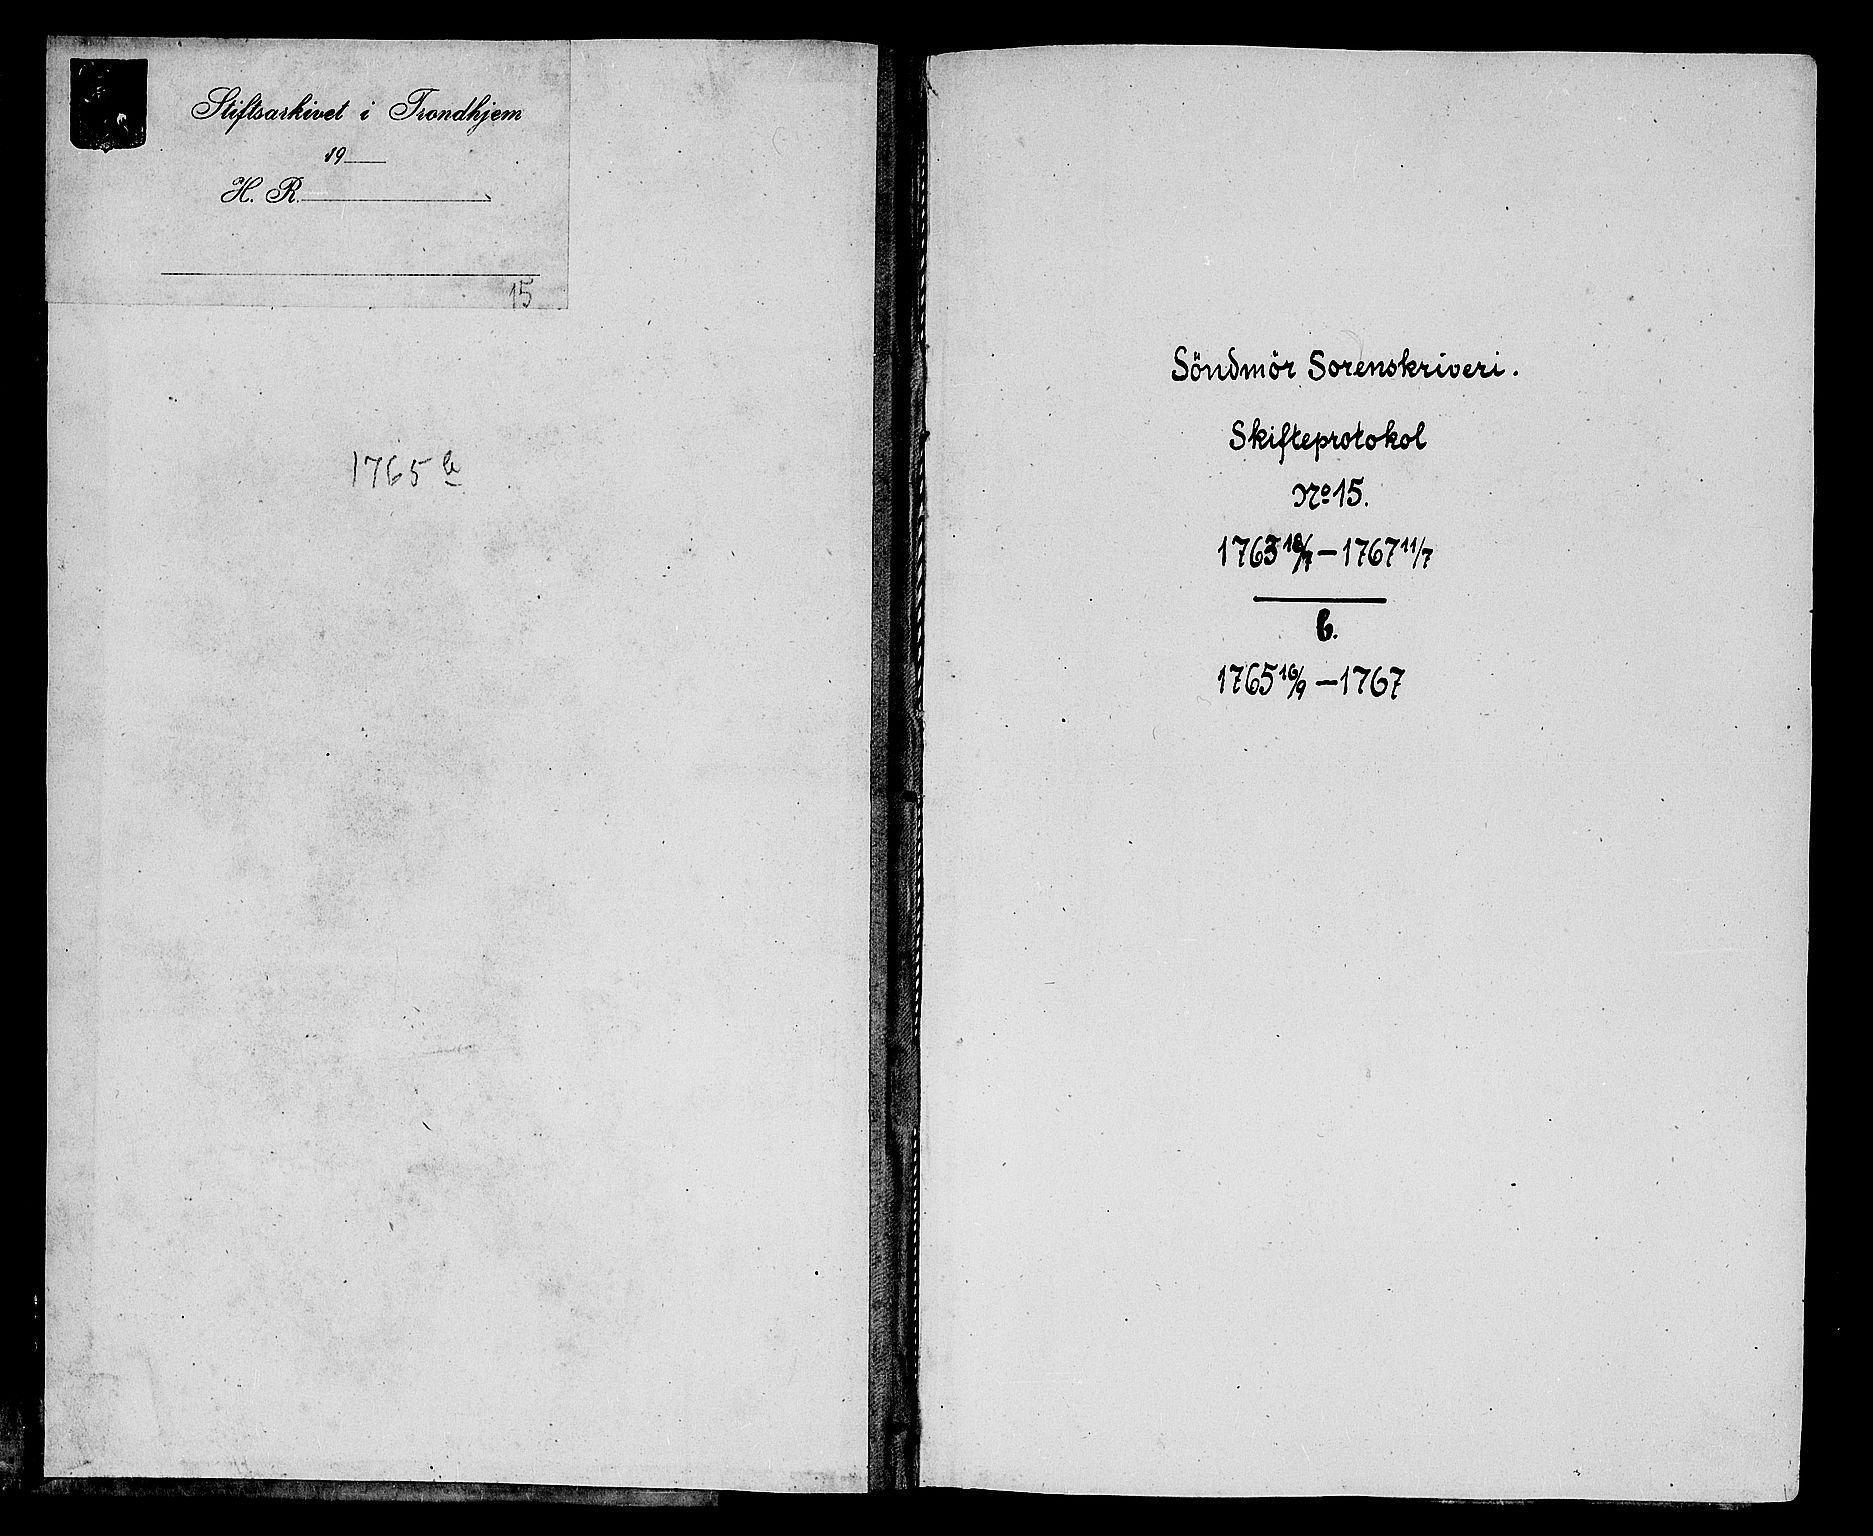 Stiftsarkivet i Trondhjem
19
H. R.
15
1765 b
Söndmör Sorenskriveri.
Skifteprotokol
No 15.
1763 18/7 — 1767 11/7
b.
1765 16/9 — 1767